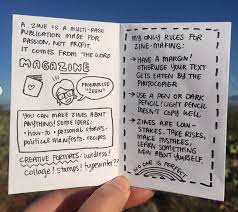 A ZINE IS A MULTI-PAGE
PUBLICATION MADE FOR
PASSION, NOT PROFIT.
IT COMES FROM THE WORD
MAGAZINE
PRONOUNCED
"ZEEN"
YOU CAN MAKE ZINES ABOUT
ANYTHING! SOME IDEAS:
• how-to • personal stories •
political manifesto • recipes.
CREATIVE FORMATS: handmade!
collage! stamps! typewriter??
MY ONLY RULES FOR
ZINE-MAKING:
→ HAVE A MARGIN!
OTHERWISE YOUR TEXT
GETS EATEN BY THE
PHOTOCOPIER
→ USE A PEN OR DARK
PENCIL! LIGHT PENCIL
DOESN'T COPY WELL
→ ZINES ARE LOW-
STAKES. TAKE RISKS,
MAKE MISTAKES,
LEARN SOMETHING
NEW ABOUT YOURSELF.
NO ONE IS PERFECT